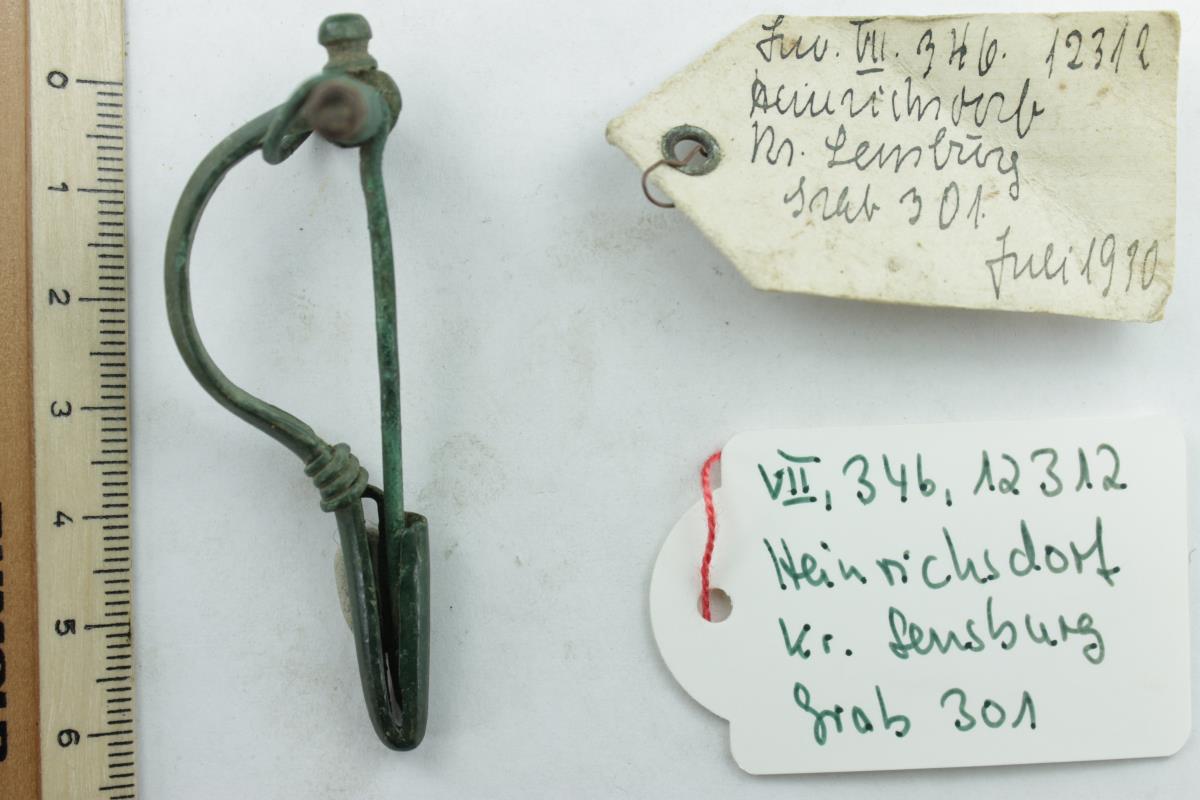 0
1
2
3
4
5
6
Inv. VII. 346. 12312
Heinrichsdorf
Kr. Sensburg
Grab 301.
Juli 1930
VII, 346, 12312
Heinrichsdorf
Kr. Sensburg
Grab 301